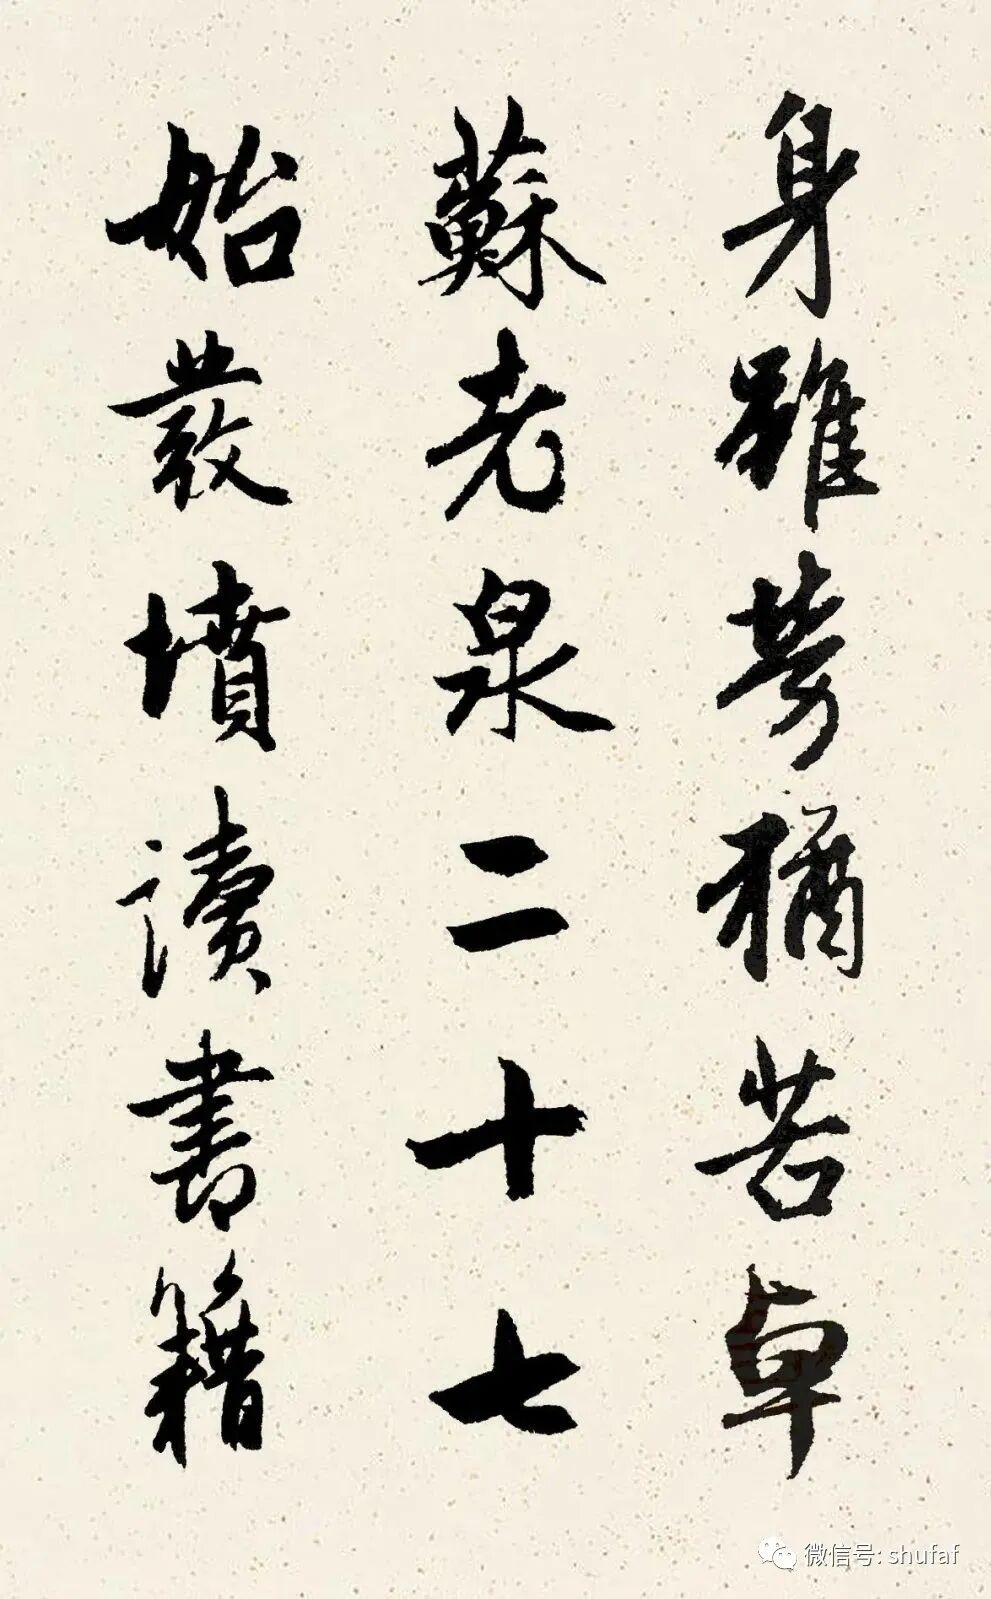 身雖勞猶苦卓
蘇老泉二十七
始發墳讀書籍
微信号: shufaf